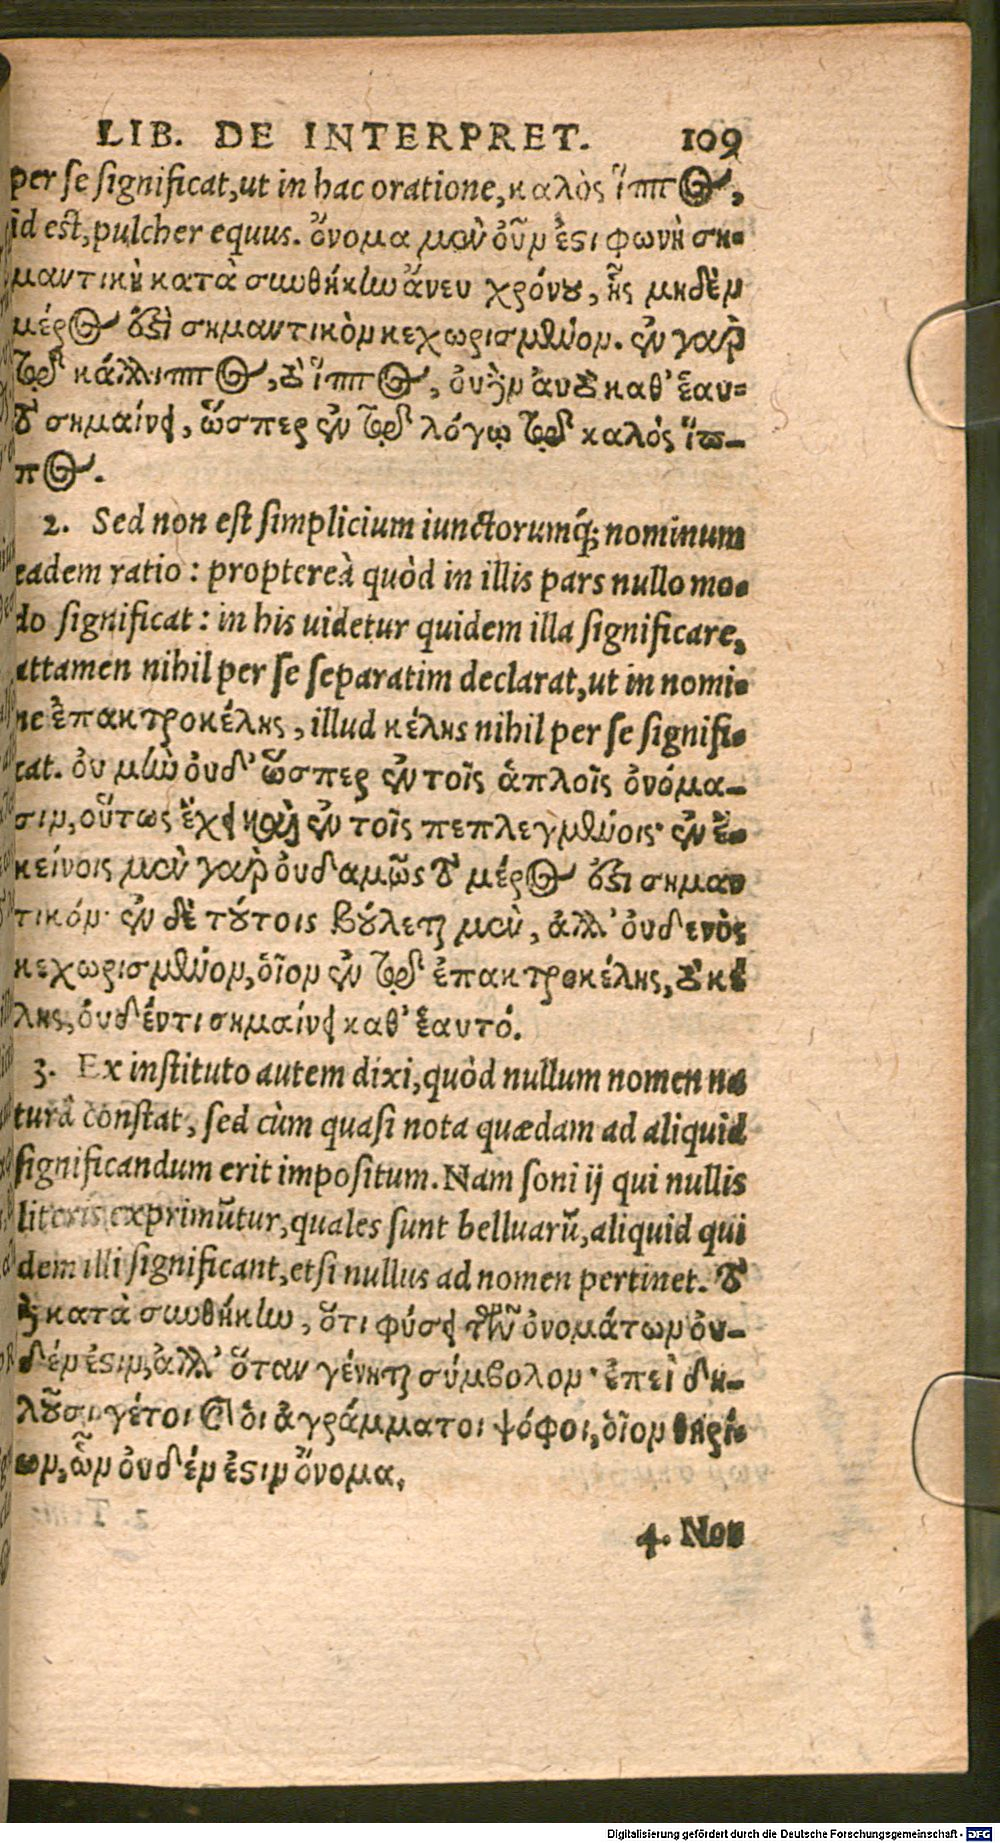 LIB. DE INTERPRET. 109
per se significat, ut in hac oratione, καλὸς ἵππος,
id est, pulcher equus. ὄνομα μὲν οὖν ἐστι φωνὴ ση-
μαντικὴ κατὰ συνθήκην ἄνευ χρόνου, ἧς μηδὲν
μέρος ἐστὶ σημαντικὸν κεχωρισμένον. ἐν γὰρ
τῷ κάλλιππος, τὸ ἵππος, οὐδὲν αὐτὸ καθ' ἑαυ-
τὸ σημαίνει, ὥσπερ ἐν τῷ λόγῳ τῷ καλός ἵπ-
πος.
2. Sed non est simplicium iunctorumq́; nominum
eadem ratio: proptereà quòd in illis pars nullo mo-
do significat: in his uidetur quidem illa significare,
attamen nihil per se separatim declarat, ut in nomi-
ne ἐπακτροκέλης, illud κέλης nihil per se signifi-
cat. οὐ μὴν οὐδ' ὥσπερ ἐν τοῖς ἁπλοῖς ὀνόμα-
σιν, οὕτως ἔχει καὶ ἐν τοῖς πεπλεγμένοις· ἐν ἐ-
κείνοις μὲν γὰρ οὐδαμῶς τὸ μέρος ἐστι σημαν
τικόν· ἐν δὲ τούτοις βούλεται μὲν, ἀλλ' οὐδενὸς
κεχωρισμένον, οἷον ἐν τῷ ἐπακτροκέλης, τὸ κέ
λης, οὐδέν τι σημαίνει καθ' ἑαυτό.
3. Ex instituto autem dixi, quòd nullum nomen na
turâ constat, sed cùm quasi nota quædam ad aliquid
significandum erit impositum. Nam soni ij qui nullis
literis exprimũtur, quales sunt belluarũ, aliquid qui
dem illi significant, etsi nullus ad nomen pertinet. τὸ
δὲ κατὰ συνθήκην, ὅτι φύσει τῶν ὀνομάτων οὐ-
δέν ἐστιν, ἀλλ' ὅταν γένηται σύμβολον· ἐπεὶ δη-
λοῦσι γέτοι καὶ οἱ ἀγράμματοι ψόφοι, οἷον θηρί-
ων, ὧν οὐδέν ἐστιν ὄνομα.
4. Non
Digitalisierung gefördert durch die Deutsche Forschungsgemeinschaft - DFG